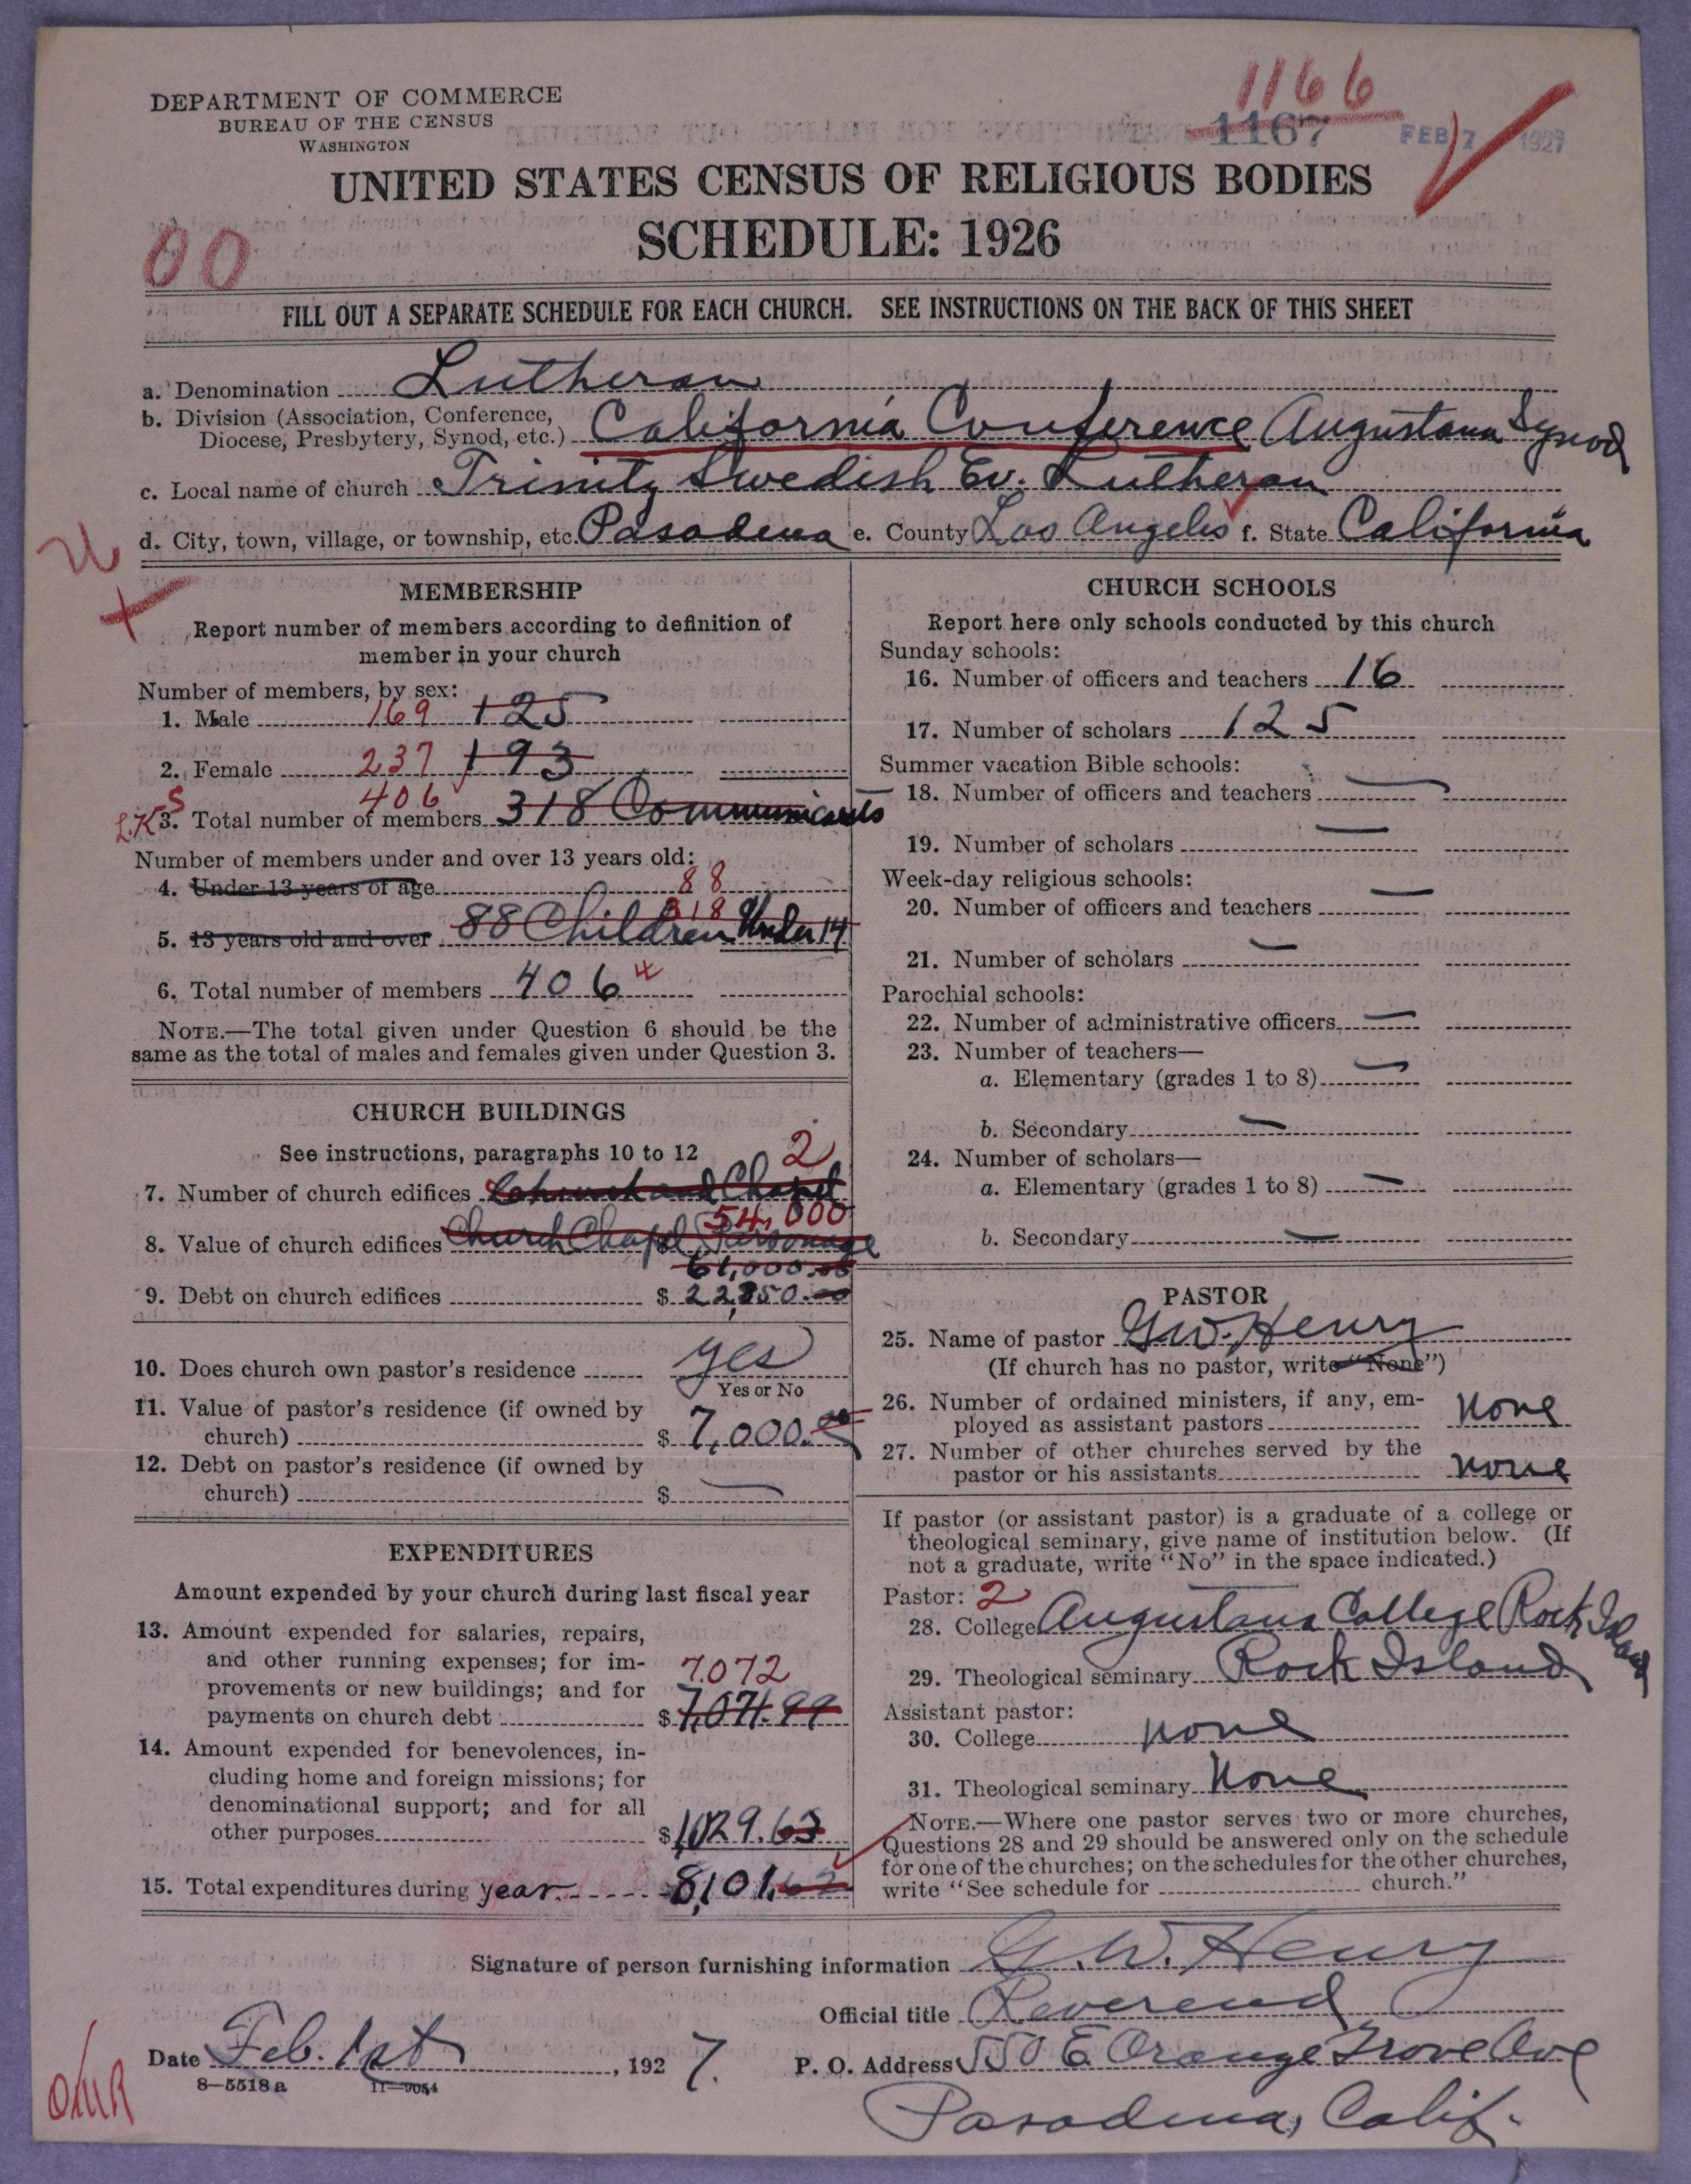 1166
DEPARTMENT OF COMMERCE
BUREAU OF THE CENSUS
WASHINGTON
1167 FEB 7 1927
UNITED STATES CENSUS OF RELIGIOUS BODIES
SCHEDULE: 1926
00
FILL OUT A SEPARATE SCHEDULE FOR EACH CHURCH. SEE INSTRUCTIONS ON THE BACK OF THIS SHEET
a. Denomination Lutheran
b. Division (Association, Conference,
Diocese, Presbytery, Synod, etc.) California Conference Augustana Synod
c. Local name of church Trinity Swedish Ev. Lutheran
d. City, town, village, or township, etc. Pasadena e. County Los Angeles f. State California
MEMBERSHIP
Report number of members according to definition of
member in your church
Number of members, by sex:
1. Male 169 125
2. Female 237 193
406
L.K. S 3. Total number of members 318 Communicants
Number of members under and over 13 years old:
4. Under 13 years of age 88
318
5. 13 years old and over 88 Children Under 14
6. Total number of members 406
NOTE.—The total given under Question 6 should be the
same as the total of males and females given under Question 3.
CHURCH BUILDINGS
See instructions, paragraphs 10 to 12 2
7. Number of church edifices Church and Chapel
54,000
8. Value of church edifices Church Chapel Parsonage
61,000.00
9. Debt on church edifices $ 22,850.00
10. Does church own pastor's residence yes
Yes or No
11. Value of pastor's residence (if owned by
church) $ 7,000.00
12. Debt on pastor's residence (if owned by
church) $ —
EXPENDITURES
Amount expended by your church during last fiscal year
13. Amount expended for salaries, repairs,
and other running expenses; for im-
provements or new buildings; and for 7,072
payments on church debt $ 7,071.99
14. Amount expended for benevolences, in-
cluding home and foreign missions; for
denominational support; and for all
other purposes $ 1,029.63
15. Total expenditures during year 8,101.62
CHURCH SCHOOLS
Report here only schools conducted by this church
Sunday schools:
16. Number of officers and teachers 16
17. Number of scholars 125
Summer vacation Bible schools:
18. Number of officers and teachers —
19. Number of scholars —
Week-day religious schools:
20. Number of officers and teachers —
21. Number of scholars —
Parochial schools:
22. Number of administrative officers —
23. Number of teachers—
a. Elementary (grades 1 to 8) —
b. Secondary —
24. Number of scholars—
a. Elementary (grades 1 to 8) —
b. Secondary —
PASTOR
25. Name of pastor G.W. Henry
(If church has no pastor, write "None")
26. Number of ordained ministers, if any, em-
ployed as assistant pastors None
27. Number of other churches served by the
pastor or his assistants none
If pastor (or assistant pastor) is a graduate of a college or
theological seminary, give name of institution below. (If
not a graduate, write "No" in the space indicated.)
Pastor: 2
28. College Augustana College Rock Island
29. Theological seminary Rock Island
Assistant pastor:
30. College none
31. Theological seminary None
NOTE.—Where one pastor serves two or more churches,
Questions 28 and 29 should be answered only on the schedule
for one of the churches; on the schedules for the other churches,
write "See schedule for church."
Signature of person furnishing information G. W. Henry
Official title Reverend
Date Feb. 1st, 1927. P. O. Address 550 E Orange Grove Ave
8—5518a 11—9054
Pasadena, Calif.